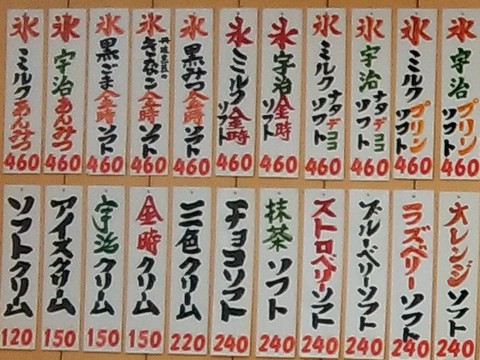 氷
ミルクあんみつ
460
氷
宇治あんみつ
460
氷
黒ごま金時ソフト
460
氷
きなこ金時ソフト
460
氷
黒みつ金時ソフト
460
氷
ミルク金時
ソフト
460
氷
宇治金時
ソフト
460
氷
ミルク
ナタデココ
ソフト
460
氷
宇治
ナタデココ
ソフト
460
氷
ミルク
プリン
ソフト
460
氷
宇治
プリン
ソフト
460
ソフトクリーム
120
アイスクリーム
150
宇治クリーム
150
金時クリーム
150
三色クリーム
220
チョコソフト
240
抹茶ソフト
240
ストロベリーソフト
240
ブルーベリーソフト
240
ラズベリーソフト
240
オレンジソフト
240